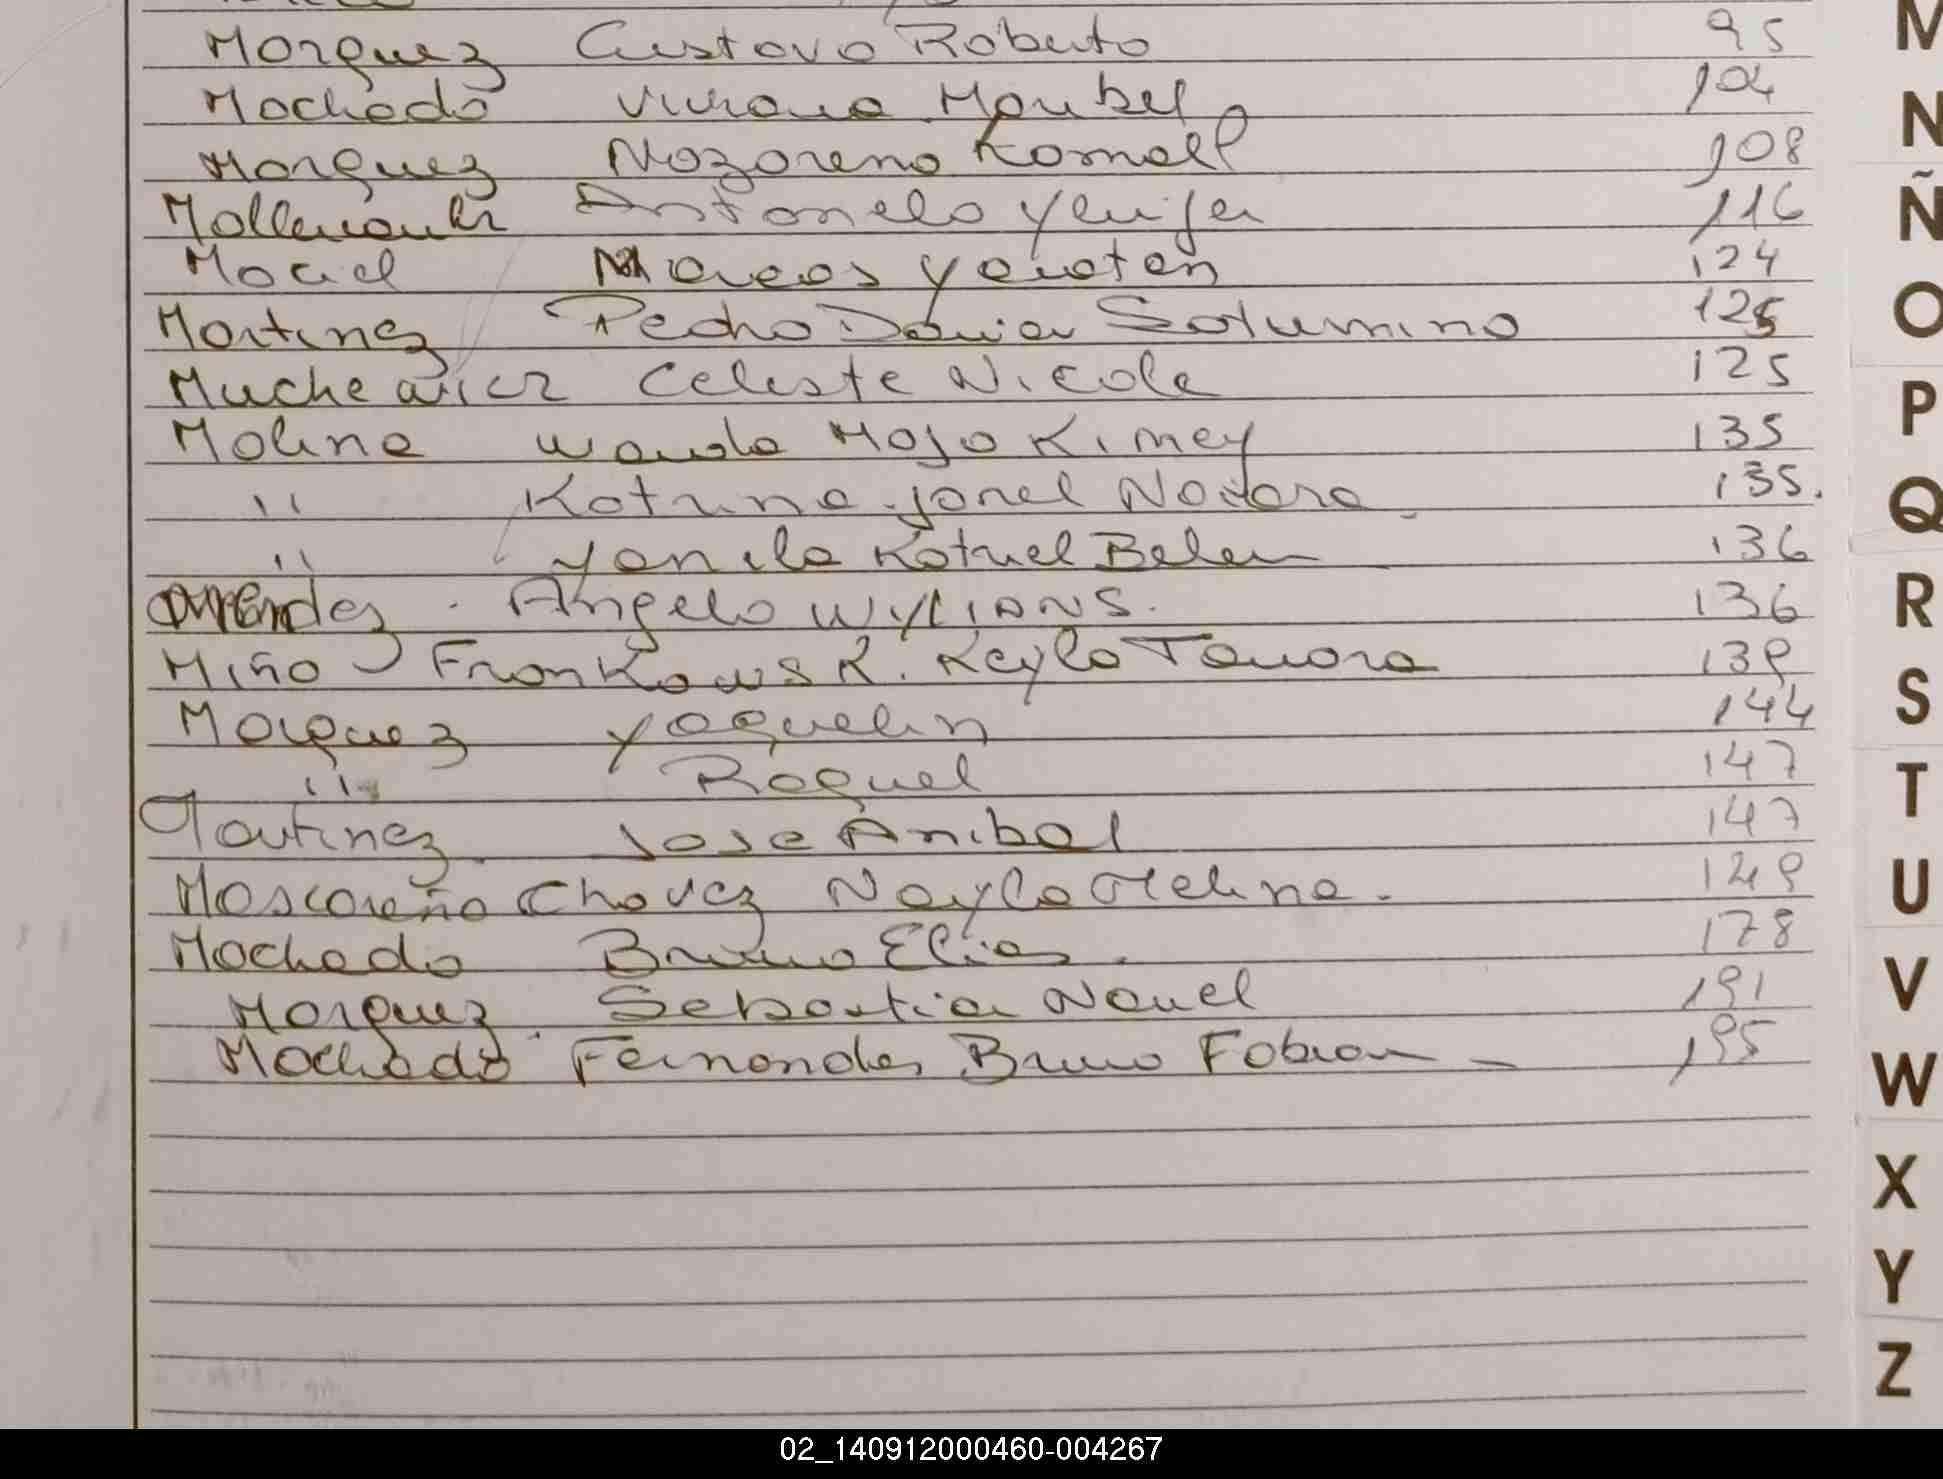 Marquez Gustavo Roberto 95
Machado Viviana Maribel 104
Marquez Nazareno Kamall 108
Antonela Yenifer 116
Maciel Marcos Yonatan 124
Martinez Pedro Javier Saturnino 125
Muchewicz Celeste Nicole 125
Molina Wanda Maja Kimey 135
" Katrina Jorel 135.
" Yamila Katriel Belen 136
Mendez. Angelo WYLIANS. 136
Miño Frankowsk. Keyla Tamara 139
Marquez Yaquelin 144
" Raquel 147
Martinez Jose Anibal 147
Mascareño Chavez Nayla Melina. 149
Machado Bruno Elias. 178
Marquez. Sebastian Nauel 191
Machado Fernandez Bruno Fabian 195
M
N
Ñ
O
P
Q
R
S
T
U
V
W
X
Y
Z
02_140912000460-004267